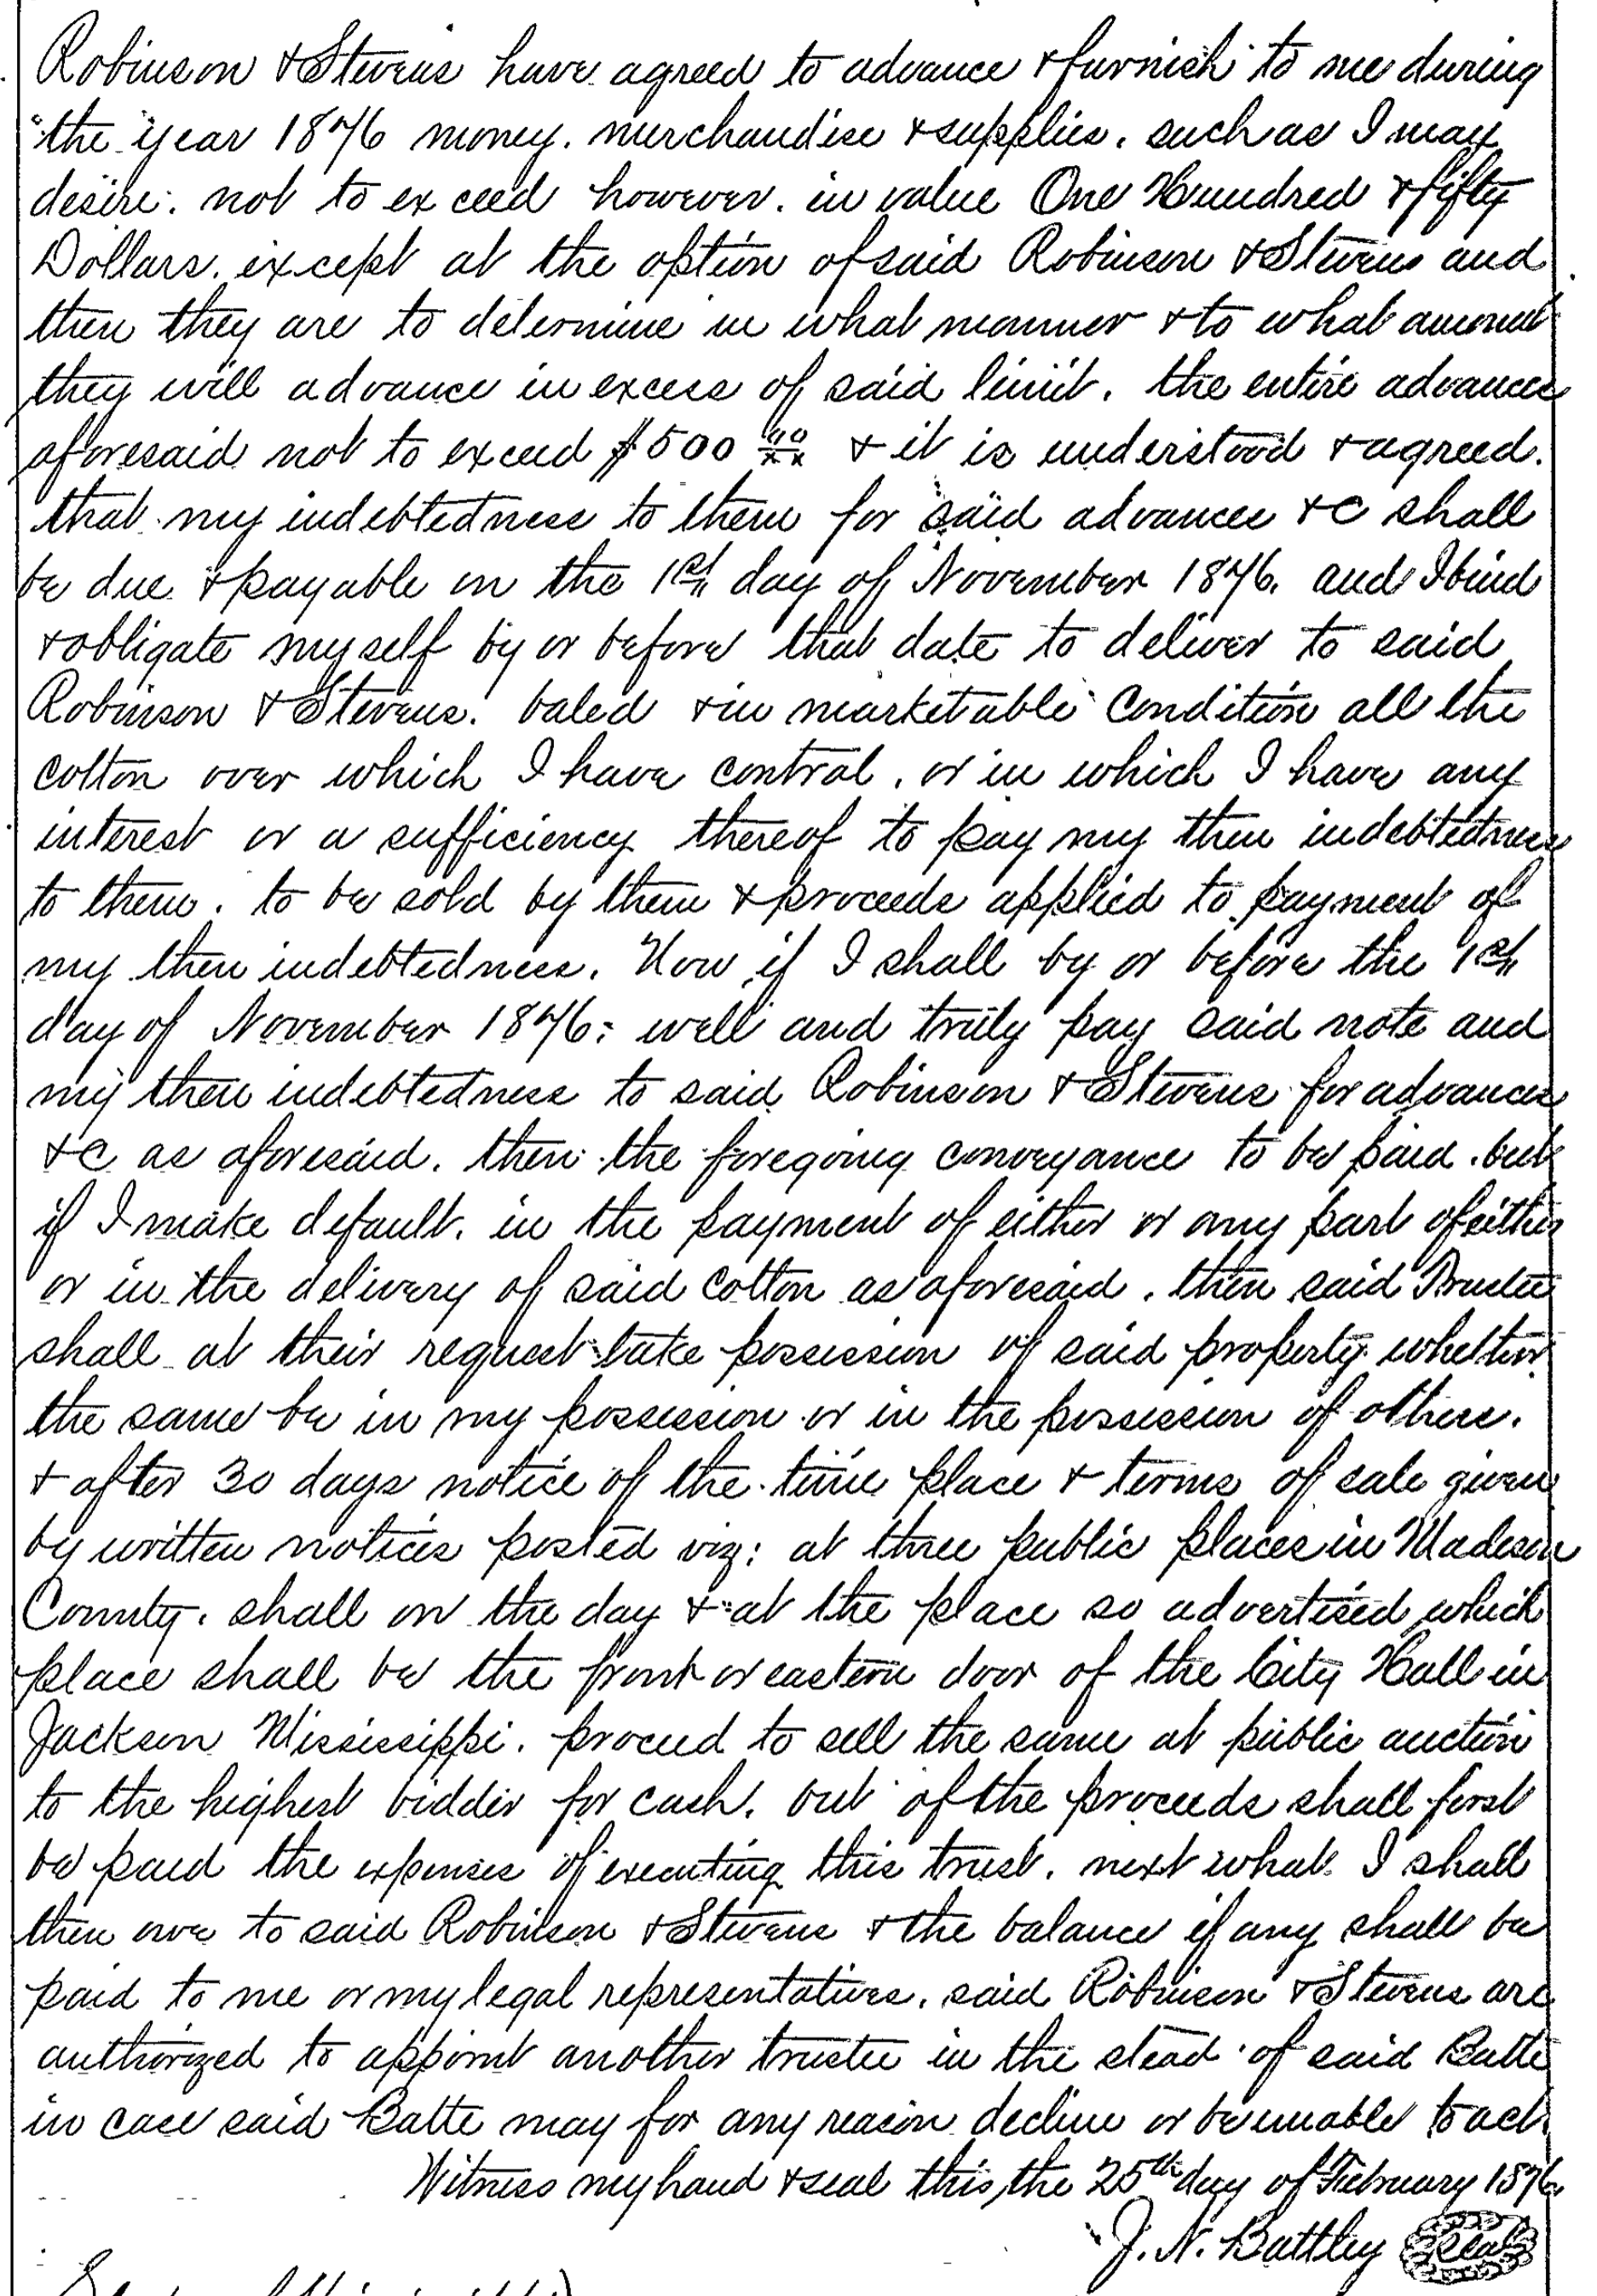 Robinson & Stevens have agreed to advance & furnish to me during
the year 1876 money. merchandise & supplies. such as I may
desire. not to exceed however. in value One Hundred & fifty
Dollars. except at the option of said Robinson & Stevens and
then they are to determine in what manner & to what amount
they will advance in excess of said limit. the entire advances
aforesaid not to exceed $500 00/xx & it is understood & agreed.
that my indebtedness to them for said advances &c shall
be due & payable on the 1st day of November 1876. and I bind
& obligate myself by or before that date to deliver to said
Robinson & Stevens. baled & in marketable condition all the
cotton over which I have control. or in which I have any
interest or a sufficiency thereof to pay my then indebtedness
to them. to be sold by them & proceeds applied to payment of
my then indebtedness. Now if I shall by or before the 1st
day of November 1876: well and truly pay said note and
my then indebtedness to said Robinson & Stevens for advances
&c as aforesaid. then the foregoing conveyance to be paid. but
if I make default. in the payment of either or any part of either
or in the delivery of said cotton as aforesaid. then said Trustee
shall at their request take possession of said property whether
the same be in my possession or in the possession of others.
& after 30 days notice of the time place & terms of sale given
by written notices posted viz: at three public places in Madison
County. shall on the day & at the place so advertised which
place shall be the front or eastern door of the City Hall in
Jackson Mississippi. proceed to sell the same at public auction
to the highest bidder for cash. out of the proceeds shall first
be paid the expenses of executing this trust. next what I shall
then owe to said Robinson & Stevens & the balance if any shall be
paid to me or my legal representatives. said Robinson & Stevens are
authorized to appoint another trustee in the stead of said Batte
in case said Batte may for any reason decline or be unable to act.
Witness my hand & seal this, the 25th day of February 1876
J. N. Battley Seal